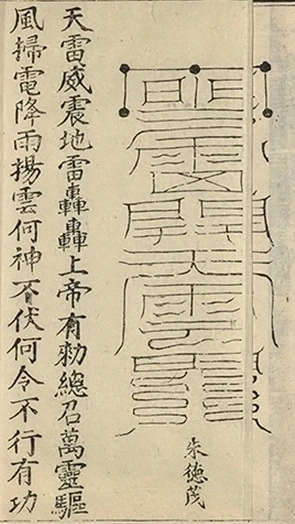 朱德茂
天雷威震地雷轟轟上帝有勅總召萬靈驅
風掃電降雨揚雲何神不伏何令不行有功